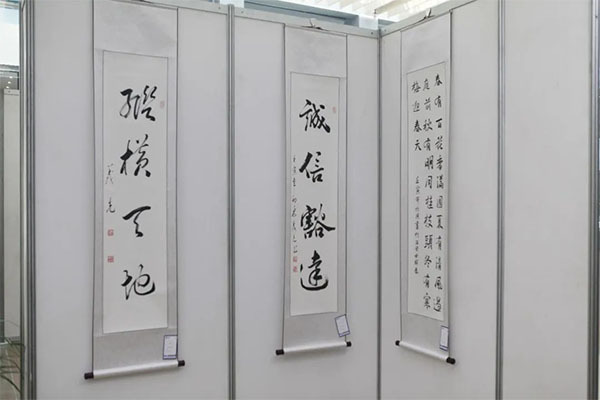 縱橫天地
誠信豁達
春有百花香滿園夏有清風過
庭前秋有明月桂枝頭冬有寒
梅迎春天